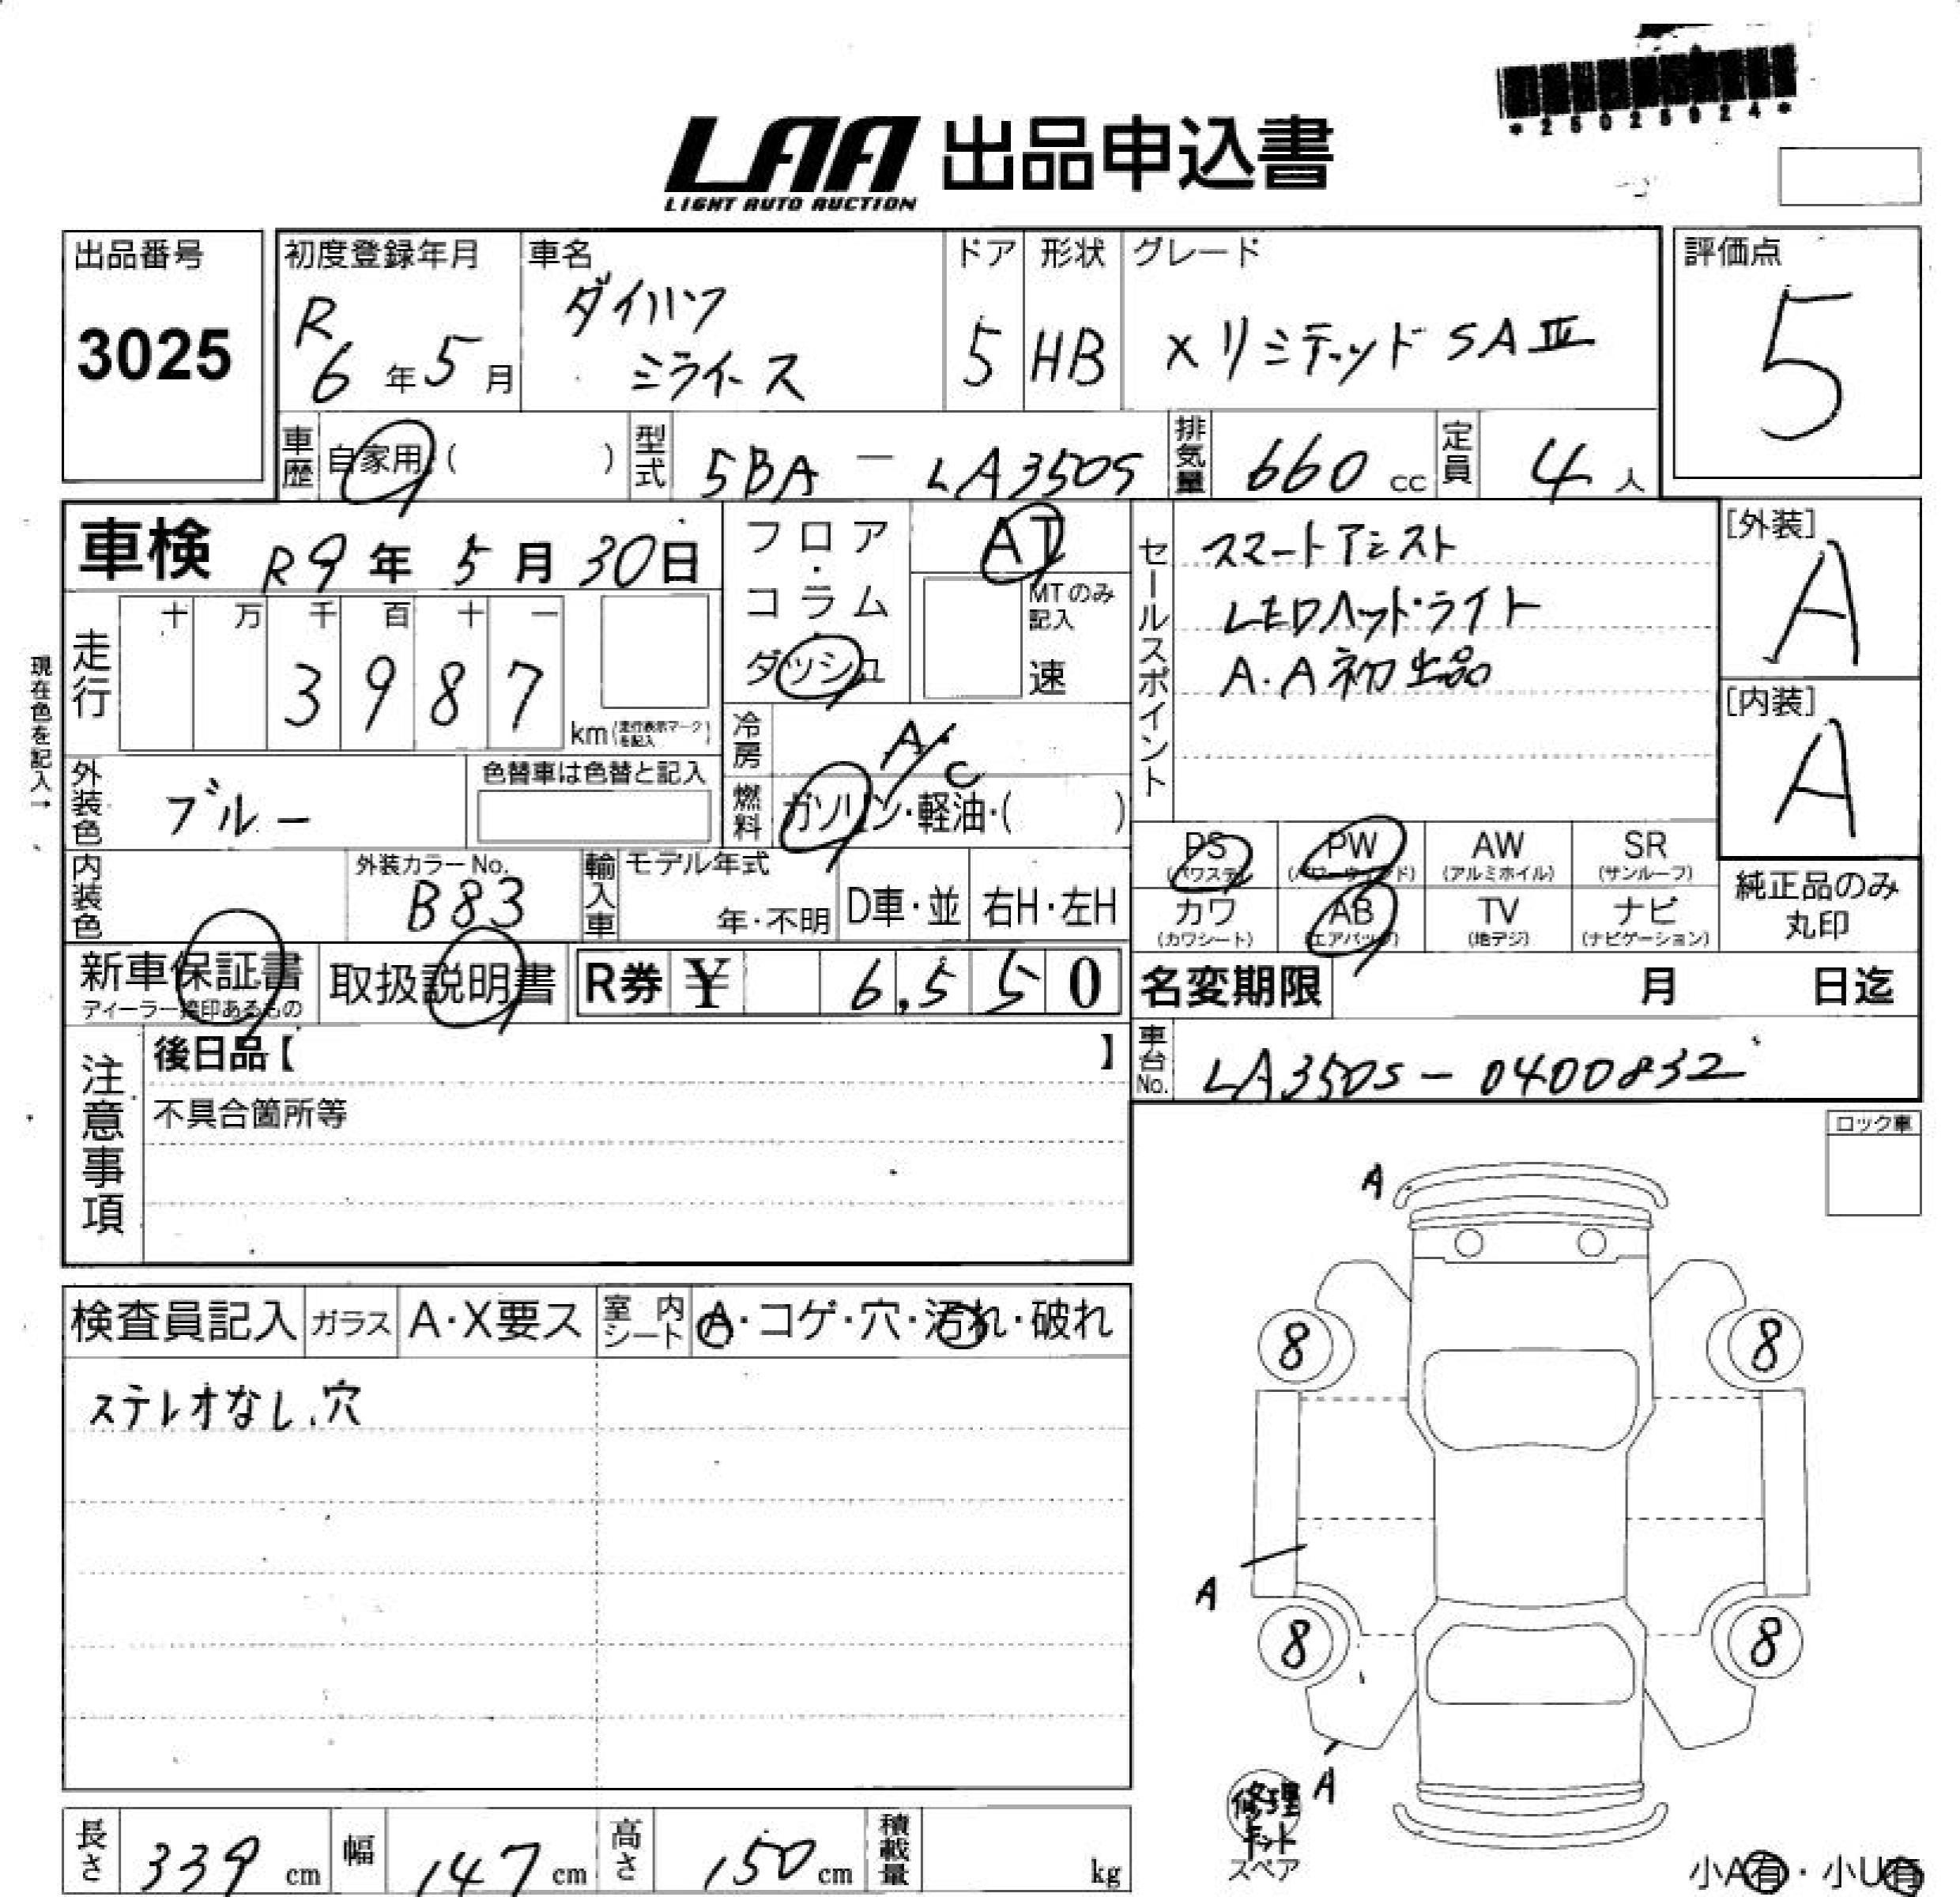 *25025924*
LAA 出品申込書
LIGHT AUTO AUCTION
出品番号
3025
初度登録年月
R
6年5月
車名
ダイハツ
ミライース
ドア
5
形状
HB
グレード
X リミテッド SAⅢ
評価点
5
車歴
自家用 ( )
型式
5BA - LA350S
排気量
660 cc
定員
4人
車検 R9年 5月 30日
フロア・コラム・ダッシュ
AT
MTのみ記入
速
セールスポイント
スマートアシスト
LEDヘッドライト
A.A初出品
[外装]
A
[内装]
A
現在色を記入→
走行
十 万 千 百 十 一
3 9 8 7
km (走行表示マークを記入)
冷房
A・C
燃料
ガソリン・軽油・( )
外装色
ブルー
色替車は色替と記入
内装色
外装カラーNo.
B83
輸入車
モデル年式
年・不明
D車・並
右H・左H
PS (パワステ)
PW (パワーウィンド)
AW (アルミホイル)
SR (サンルーフ)
カワ (カワシート)
AB (エアバック)
TV (地デジ)
ナビ (ナビゲーション)
純正品のみ
丸印
新車保証書
ディーラー捺印あるもの
取扱説明書
R券 ¥ 6,550
名変期限 月 日迄
車台No.
LA350S - 0400832
注意事項
後日品【 】
不具合箇所等
ロック車
検査員記入
ガラス
A・X要ス
室内シート
A・コゲ・穴・汚れ・破れ
ステレオなし、穴
A
8 8
A
8 8
A
修理
キット
スペア
小A有・小U有
長さ
339 cm
幅
147 cm
高さ
150 cm
積載量
kg